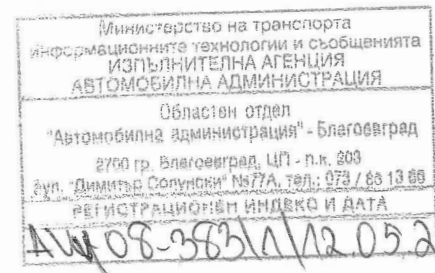 Министерство на транспорта
информационните технологии и съобщенията
ИЗПЪЛНИТЕЛНА АГЕНЦИЯ
АВТОМОБИЛНА АДМИНИСТРАЦИЯ
Областен отдел
"Автомобилна администрация" - Благоевград
2700 гр. Благоевград, ЦП - п.к. 203
бул. "Димитър Солунски" №77А, тел.: 073 / 88 13 66
РЕГИСТРАЦИОНЕН ИНДЕКС И ДАТА
08-383/1/12.05.2